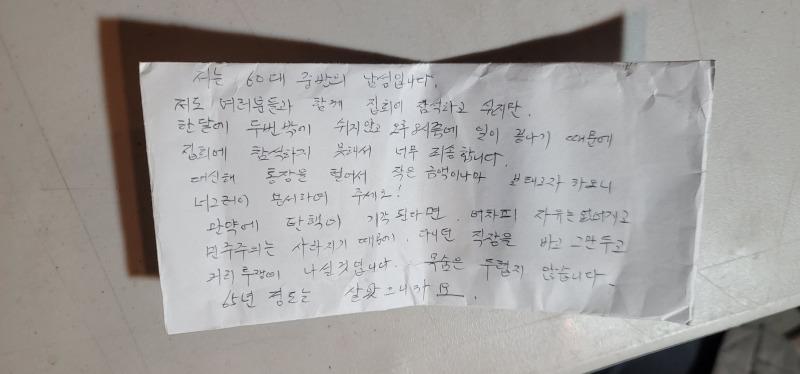 저는 60대 중반의 남성입니다.
저도 여러분들과 함께 집회에 참석하고 싶지만.
한달에 두번밖에 쉬지않고 오후 8시쯤에 일이 끝나기 때문에
집회에 참석하지 못해서 너무 죄송합니다.
대신해 통장을 털어서 작은 금액이나마 보태고자 하오니
너그러이 용서하여 주세요!
만약에 탄핵이 기각된다면. 어차피 자유는 없어지고
민주주의는 사라지기 때문에. 다니던 직장을 바로 그만두고
거리투쟁에 나설것입니다. 목숨은 두렵지 않습니다.
65년 정도는 살았으니까요.